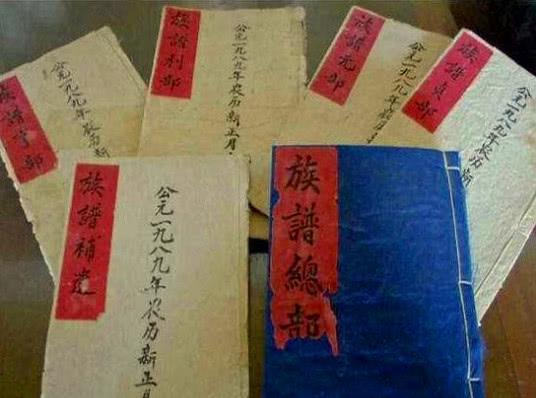 族譜亨部
公元一九八九年农历新
族譜利部
公元一九八九年农历新正月
族譜元部
公元一九八九年农历
族譜貞部
公元一九八九年农历新
族譜補遺
公元一九八九年农历新正月
族譜總部